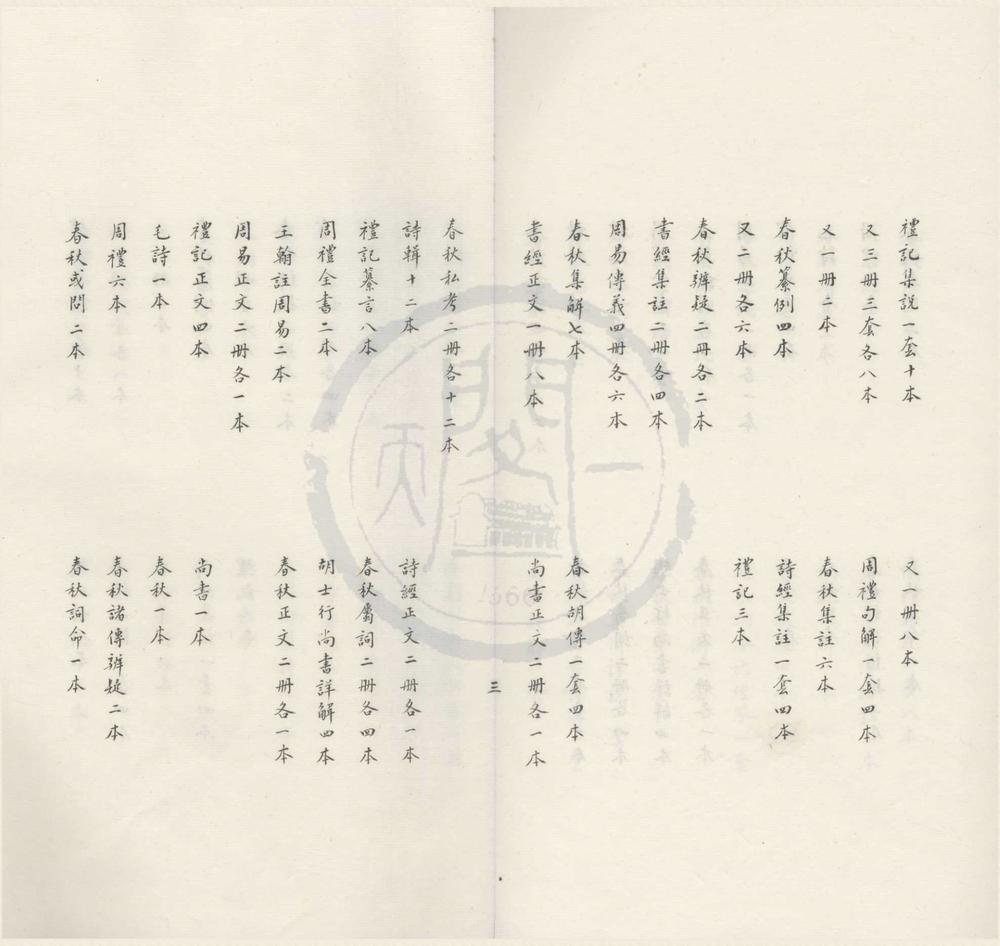 禮記集説一套十本
又一册八本
又三册三套各八本
周禮句解一套四本
又一册二本
春秋集註六本
春秋纂例四本
詩經集註一套四本
又二册各六本
禮記三本
春秋辨疑二冊各二本
書經集註二册各四本
周易傳義四册各六本
春秋集解七本
春秋胡傳一套四本
書經正文一册八本
尚書正文二册各一本
三
春秋私考二册各十二本
詩輯十二本
詩經正文二册各一本
禮記纂言八本
春秋屬詞二册各四本
周禮全書二本
胡士行尚書詳解四本
王翰註周易二本
春秋正文二册各一本
周易正文二册各一本
禮記正文四本
尚書一本
毛詩一本
春秋一本
周禮六本
春秋諸傳辨疑二本
春秋或問二本
春秋詞命一本
天一閣
1566